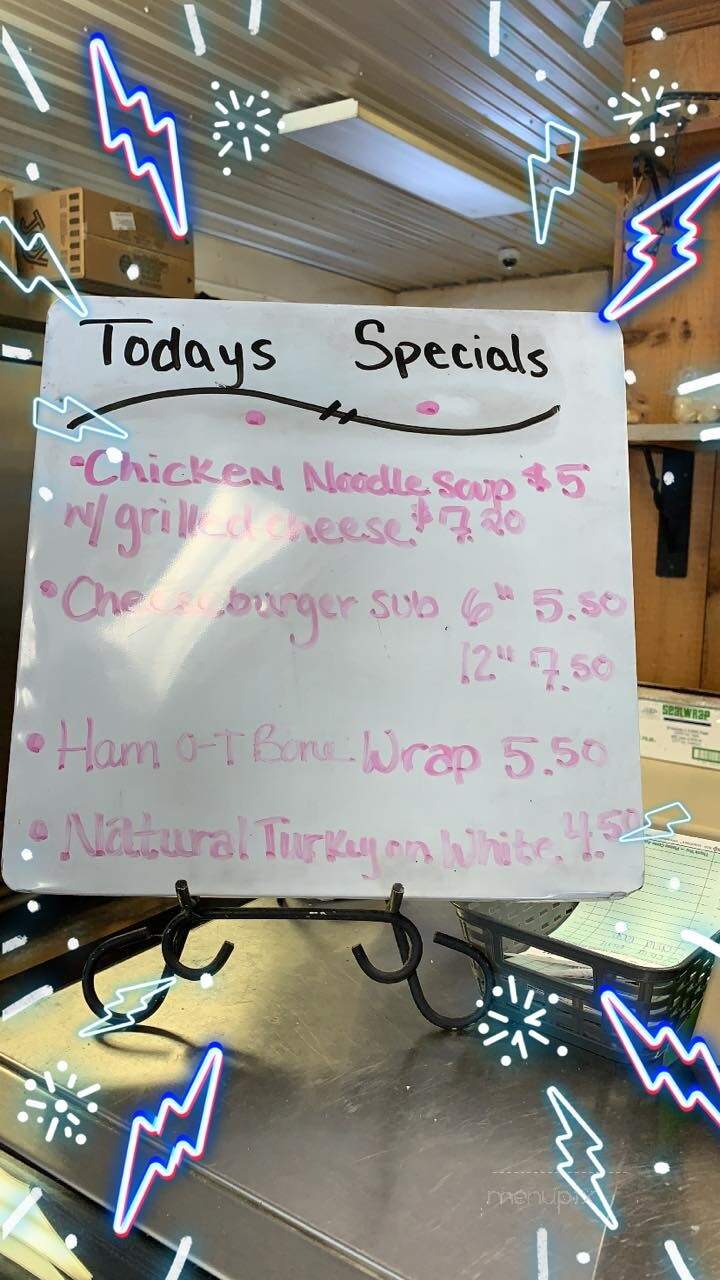 Todays Specials
Chicken Noodle Soup $5
w/ grilled cheese $7.20
Cheeseburger sub 6" 5.50
12" 7.50
Ham O-T Bone Wrap 5.50
Natural Turkey on White 4.50
SEALWRAP
menupix